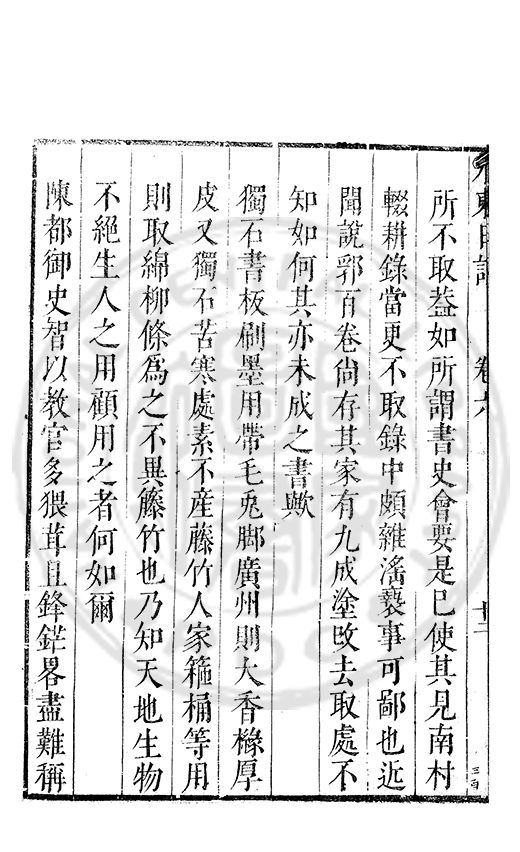 水東日記 卷六 十三
所不取葢如所謂書史會要是已使其見南村
輟耕錄當更不取錄中頗雜滛褻事可鄙也近
聞說郛百卷尙存其家有九成塗改去取處不
知如何其亦未成之書歟
獨石書板刷墨用帶毛兎脚廣州則大香櫞厚
皮又獨石苦寒處素不産藤竹人家箍桶等用
則取綿柳條爲之不異籐竹也乃知天地生物
不絕生人之用顧用之者何如爾
陳都御史智以教官多猥茸且鋒鋩畧盡難稱